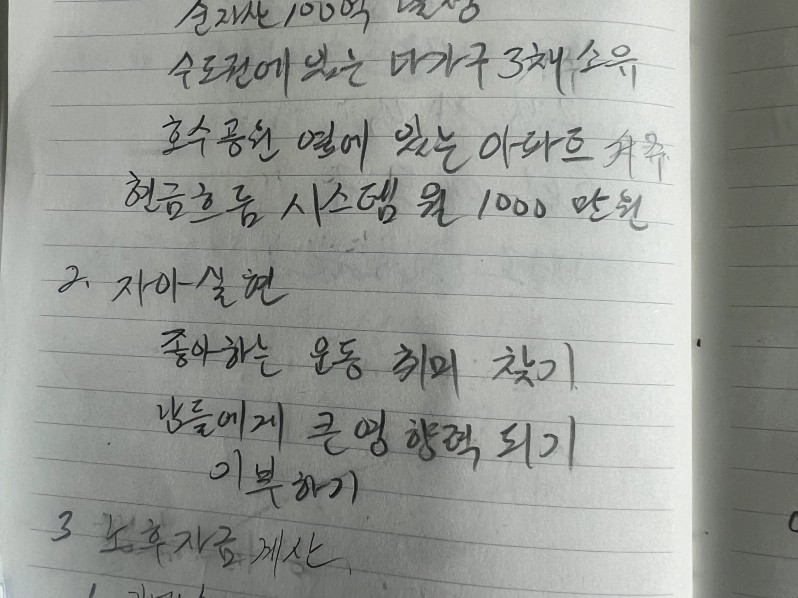 순자산 100억 달성
수도권에 있는 다가구 3채 소유
호수공원 옆에 있는 아파트 거주
현금흐름 시스템 월 1000 만원
2. 자아실현
좋아하는 운동 취미 찾기
남들에게 큰 영향력 되기
기부하기
3 노후자금 계산
1.